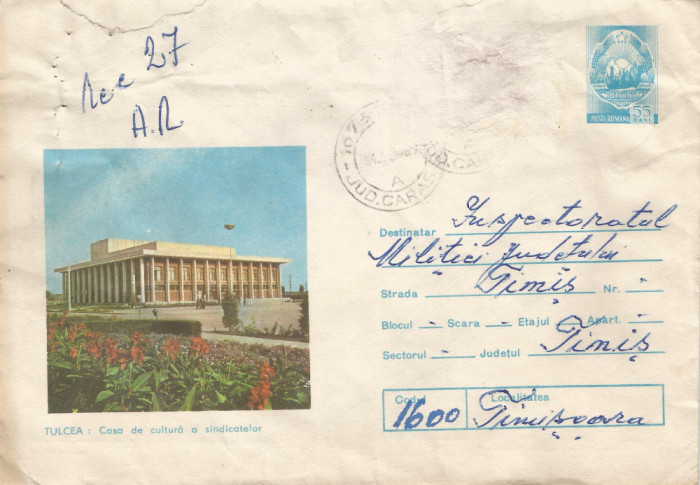 Rec 27
A.R.
POSTA ROMANA 55 BANI
JUD. CARAS
A
JUD. CARAS
Destinatar Inspectoratul
Militiei Județului
Strada Timiș Nr. "
Blocul - Scara - Etajul - Apart. -
Sectorul - Județul Timiș
Codul Localitatea
1600 Timișoara
TULCEA : Casa de cultură a sindicatelor